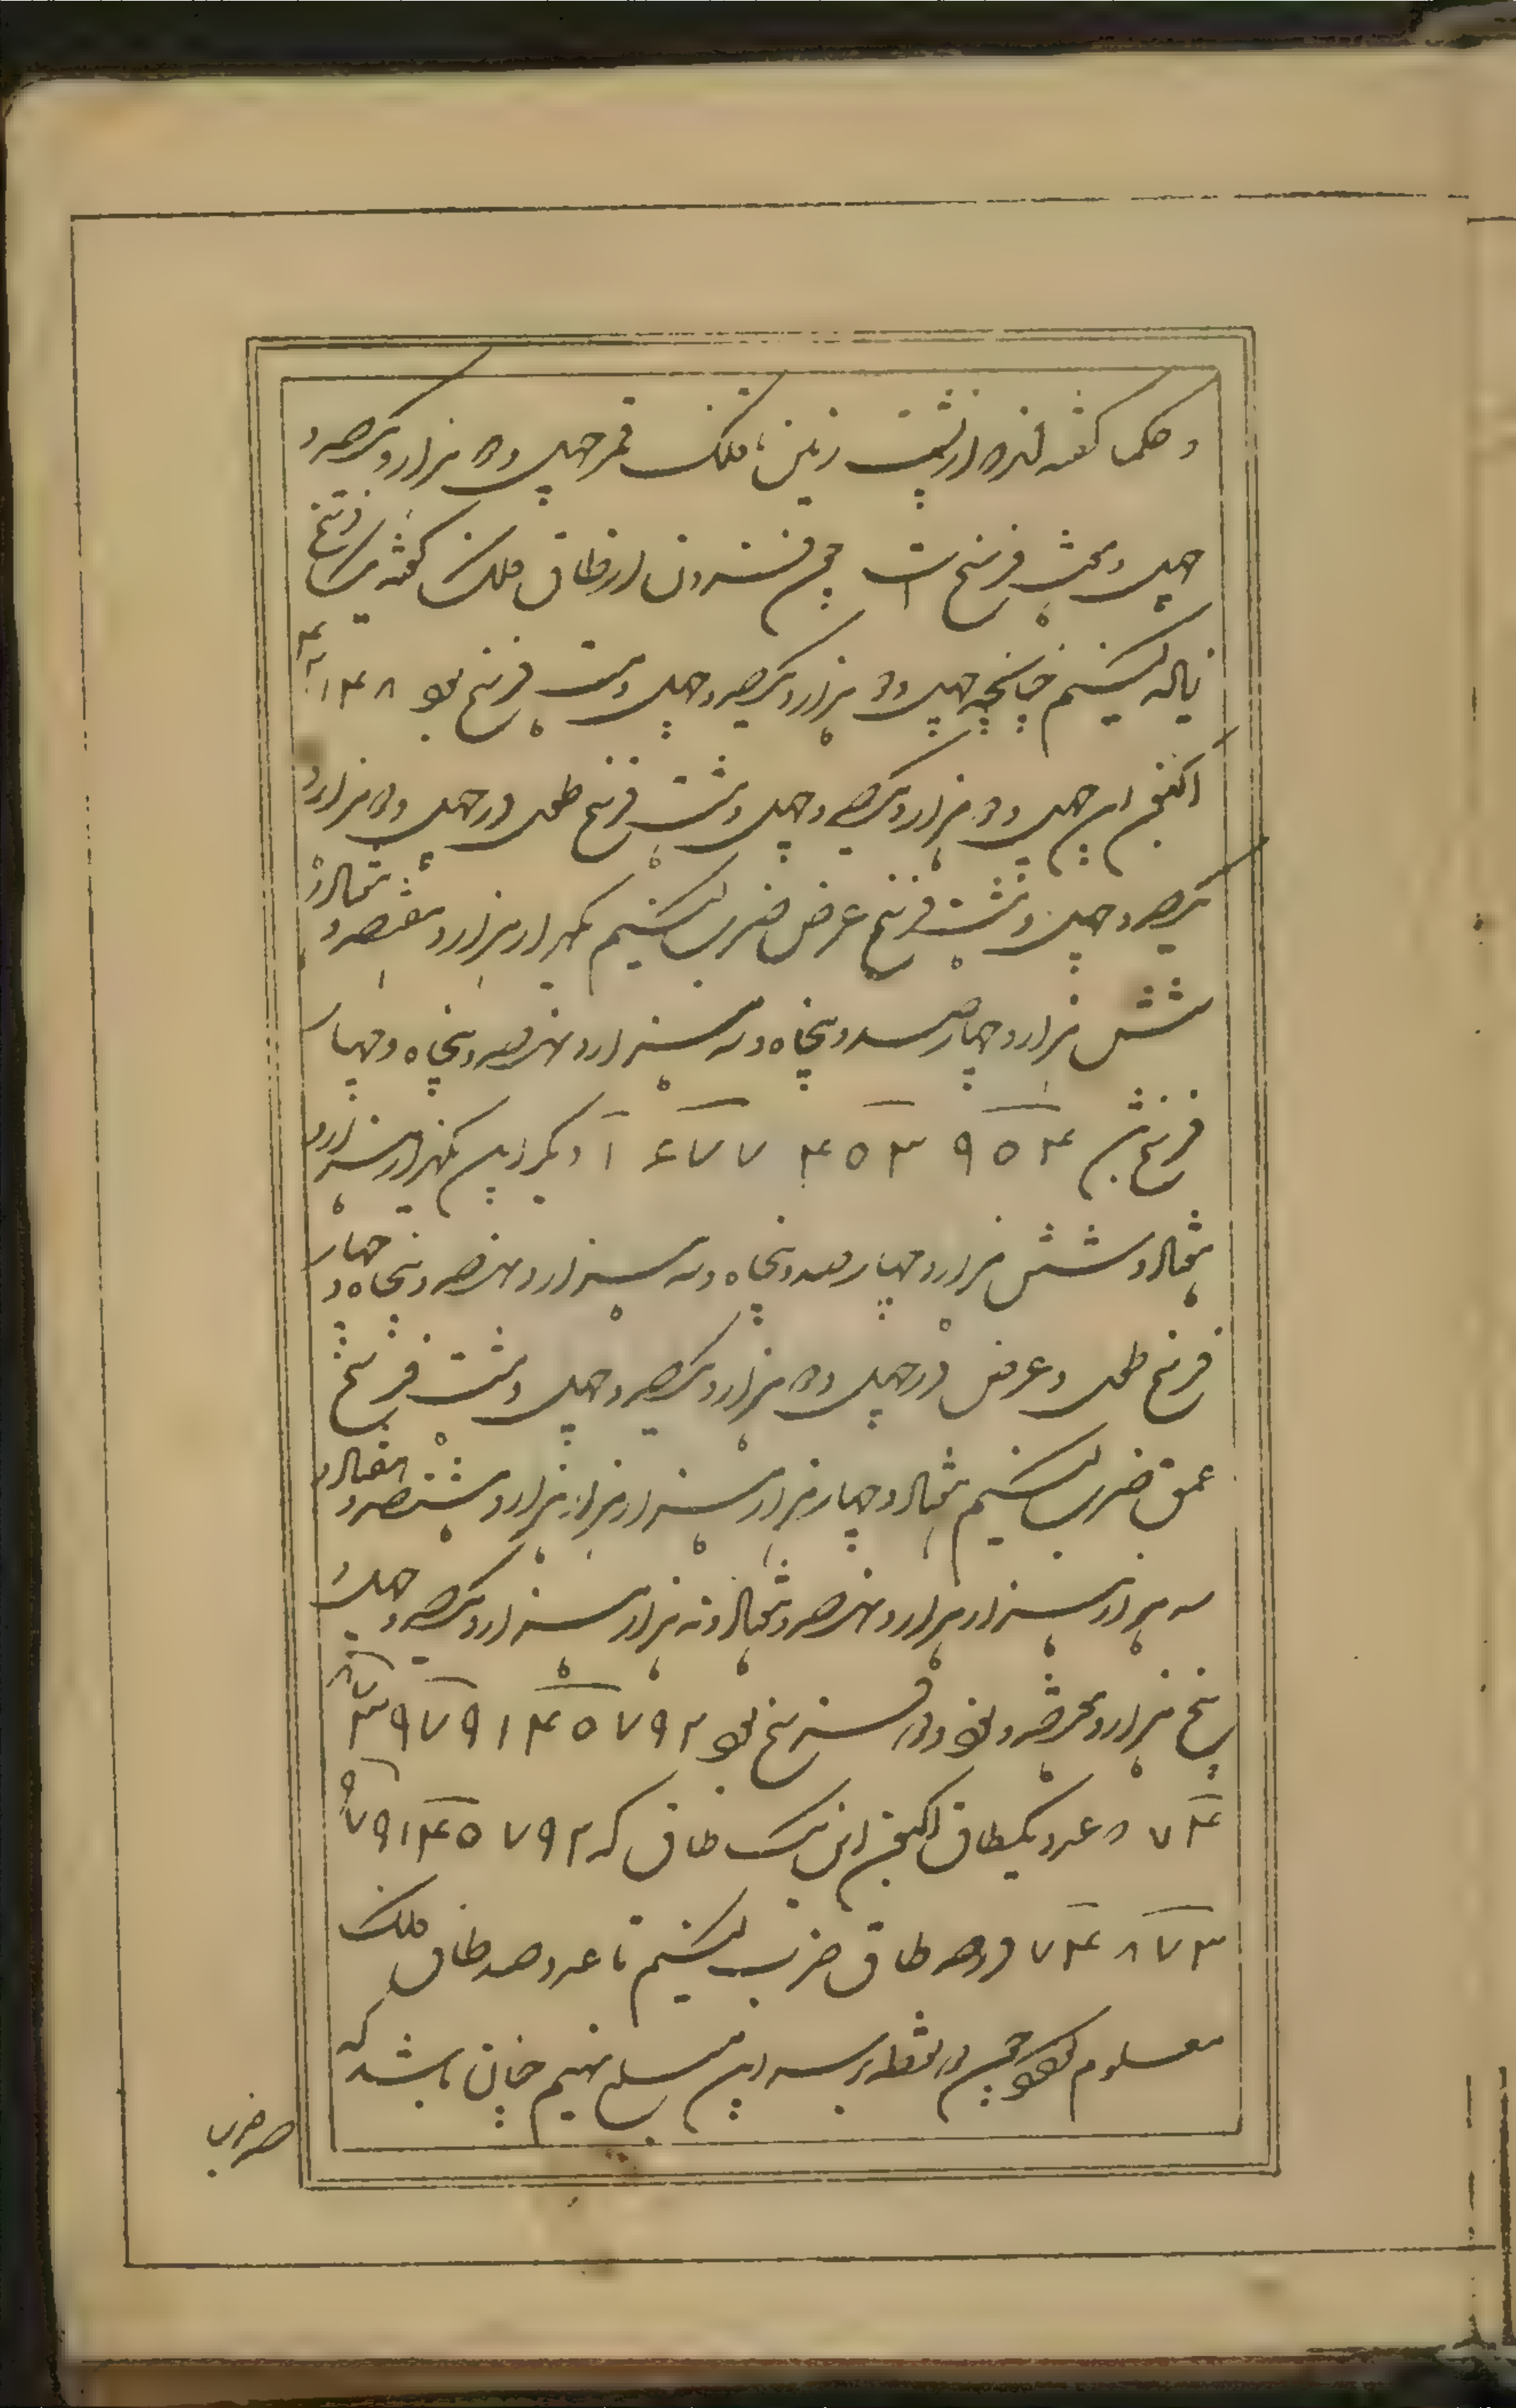 و حکما گفته اند که از پشت زمین تا فلک قمر چهل و دو هزار و یکصد و
چهل و هشت فرسنخ است چون افسردن از طاق فلک گفته یک فرسنخ
پیاله کنیم چنانچه چهل و دو هزار و یکصد و چهل و هشت فرسنخ بود ۴۲۱۴۸
اکنون این چهل و دو هزار و یکصد و چهل و هشت فرسنخ طول در چهل و دو هزار و
یکصد و چهل و هشت فرسنخ عرض ضرب کنیم یکهزار هزار و هفتصد و هفتاد و
شش هزار و چهارصد و پنجاه و سه هزار و نهصد و پنجاه و چهار
فرسنخ شد ۹۵۴ ۴۵۳ ۱۷۷۶ دیگر این یکهزار هزار و
هفتاد و شش هزار و چهارصد و پنجاه و سه هزار و نهصد و پنجاه و چهار
فرسنخ طول و عرض در چهل و دو هزار و یکصد و چهل و هشت فرسنخ
عمق ضرب کنیم هفتاد و چهار هزار هزار هزار و هشتصد و هفتاد و
سه هزار هزار هزار و نهصد و هفتاد و نه هزار هزار و یکصد و چهل و
پنج هزار و هفتصد و نود و دو فرسنخ بود ۷۴۸۷۳۹۷۹۱۴۵۷۹۲
عدد یکطاق اکنون این یک طاق که ۹۷۹۱۴۵۷۹۲
۷۴۸۷۳ در صد طاق ضرب کنیم تا عدد صد طاق فلک
معلوم بود چون دو نقطه بر سر این مبلغ نهیم چنان باشد که
صد ضرب